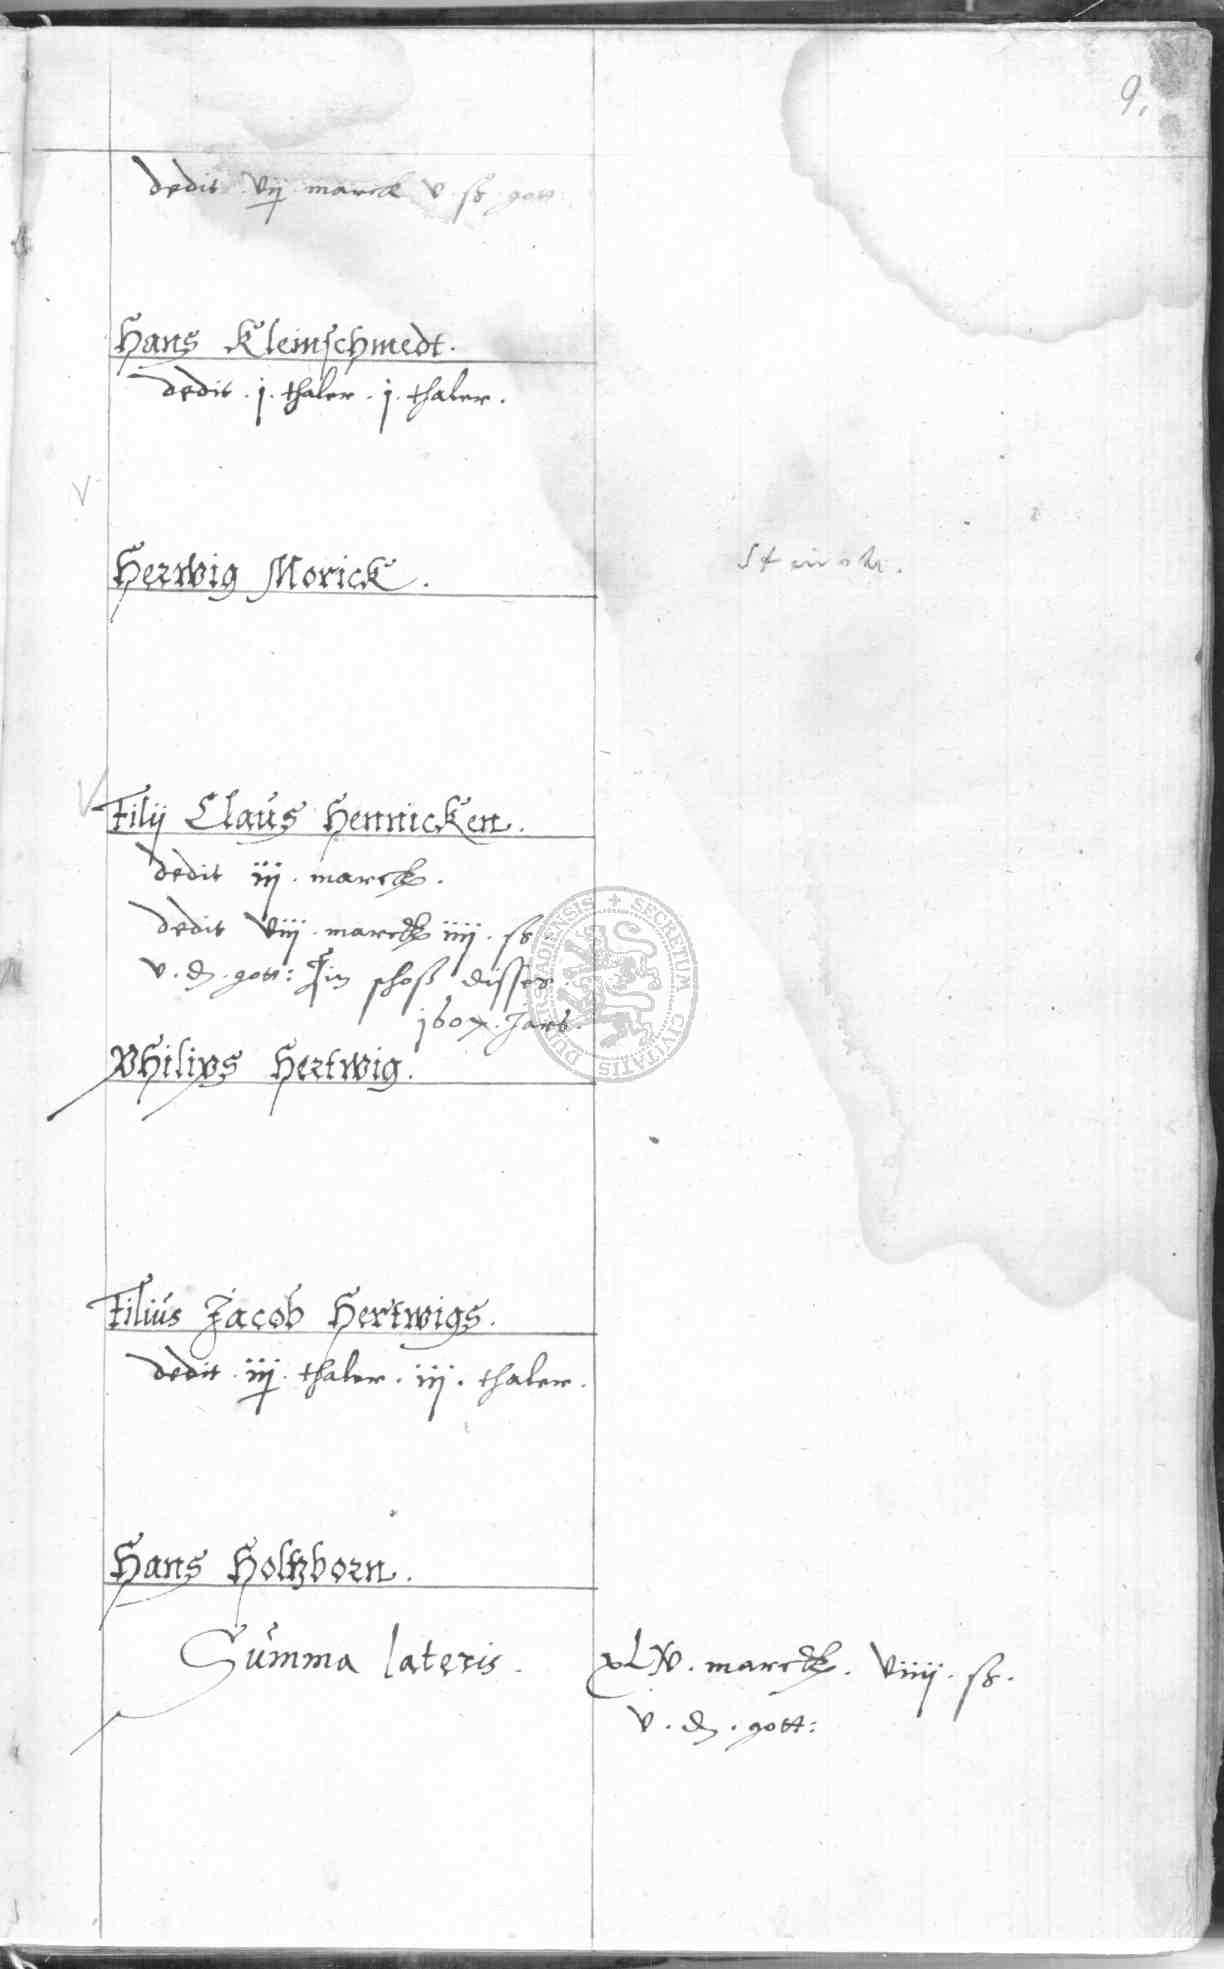 9.
dedit . vij . marck v . ß . gott
Hans Kleinschmedt .
dedit . j . thaler . j . thaler .
Herwig Morick .
Filij Claus Hennicken .
dedit iij . marck .
dedit viij . marck iiij . ß
v . d . gott : in schoß disser
1607 . Jars .
Philips Hertwig .
Filius Jacob Hertwigs .
dedit . iij . thaler . iij . thaler .
Hans Holtzborn .
Summa lateris . xLV . marck . viiij . ß .
v . d . gott :
SECRETUM CIVITATIS DUDERSTADIENSIS